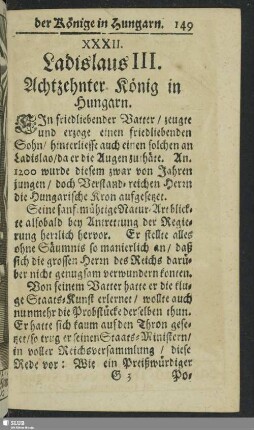 der Könige in Hungarn. 149
XXXII.
Ladislaus III.
Achtzehnter König in
Hungarn.
EIn friedliebender Vatter / zeugte
und erzoge einen friedliebenden
Sohn / hinterliesse auch einen solchen an
Ladislao / da er die Augen zuthäte. An.
1200 wurde diesem zwar von Jahren
jungen / doch Verstand-reichen Herrn
die Hungarische Kron aufgesetzet.
Seine sanftmühtige Natur-Art blick-
te alsobald bey Antrettung der Regie-
rung herrlich hervor. Er stellte alles
ohne Säumnis so manierlich an / daß
sich die grossen Herrn des Reichs darü-
ber nicht genugsam verwundern konten.
Von seinem Vatter hatte er die klu-
ge Staats-Kunst erlernet / wollte auch
nunmehr die Probstücke derselben thun.
Er hatte sich kaum auf den Thron gese-
tzet / so trug er seinen Staats-Ministern /
in voller Reichsversammlung / diese
Rede vor: Wie ein Preißwürdiger
G 3 Po-